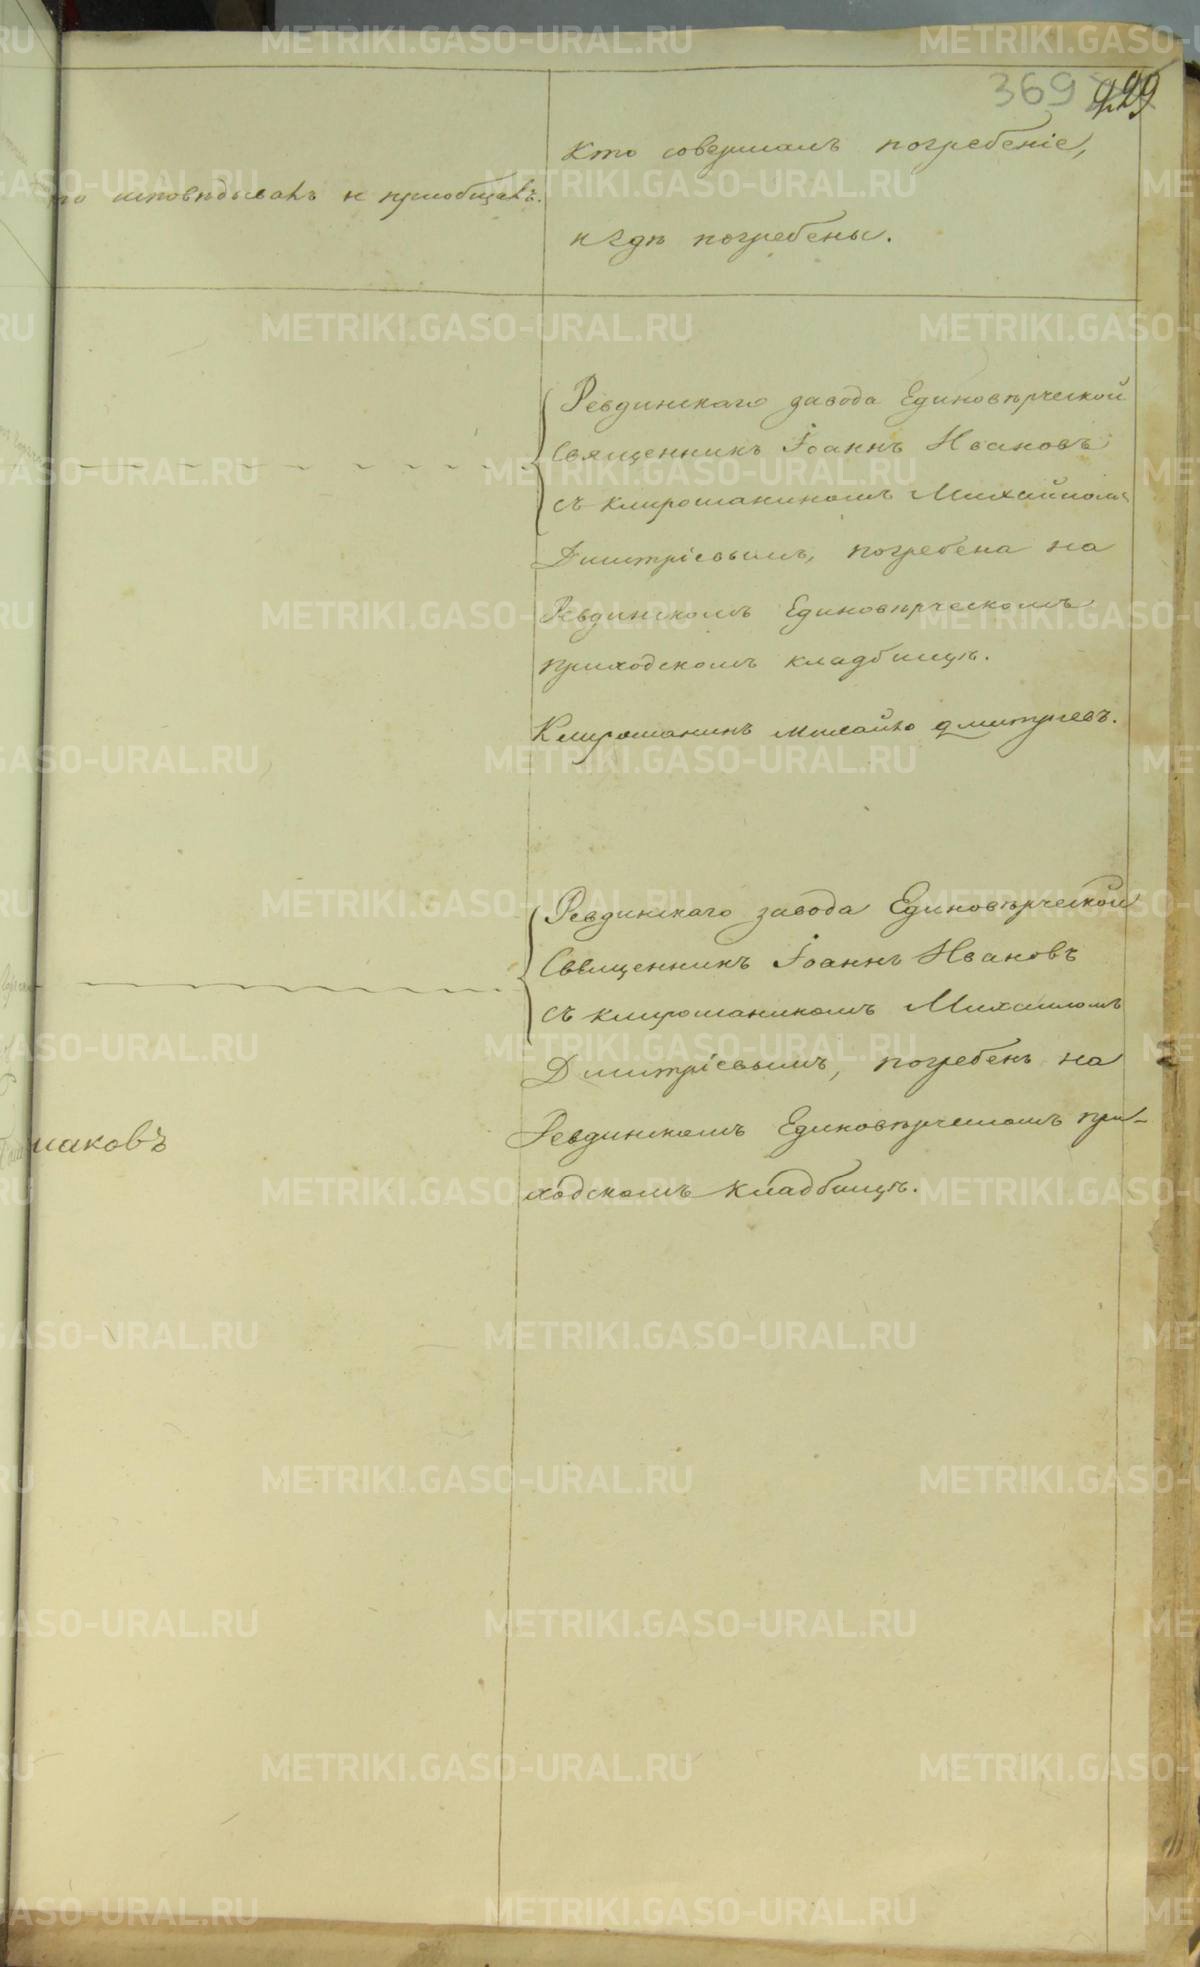 369 229
Кто совершалъ погребеніе,
то исповѣдывалъ и пріобщалъ.
и гдѣ погребены.
Ревдинскаго завода Единовѣрческой
Священникъ Іоаннъ Ивановъ
съ клирошаниномъ Михайломъ
Дмитріевымъ, погребена на
Ревдинскомъ Единовѣрческомъ
приходскомъ кладбищѣ.
Клирошанинъ Михайло Дмитриевъ.
Ревдинскаго завода Единовѣрческой
Священникъ Іоаннъ Ивановъ
съ клирошаниномъ Михаиломъ
Дмитріевымъ, погребенъ на
Ревдинскомъ Единовѣрческомъ при-
шаковъ
ходскомъ кладбищѣ.
METRIKI.GASO-URAL.RU